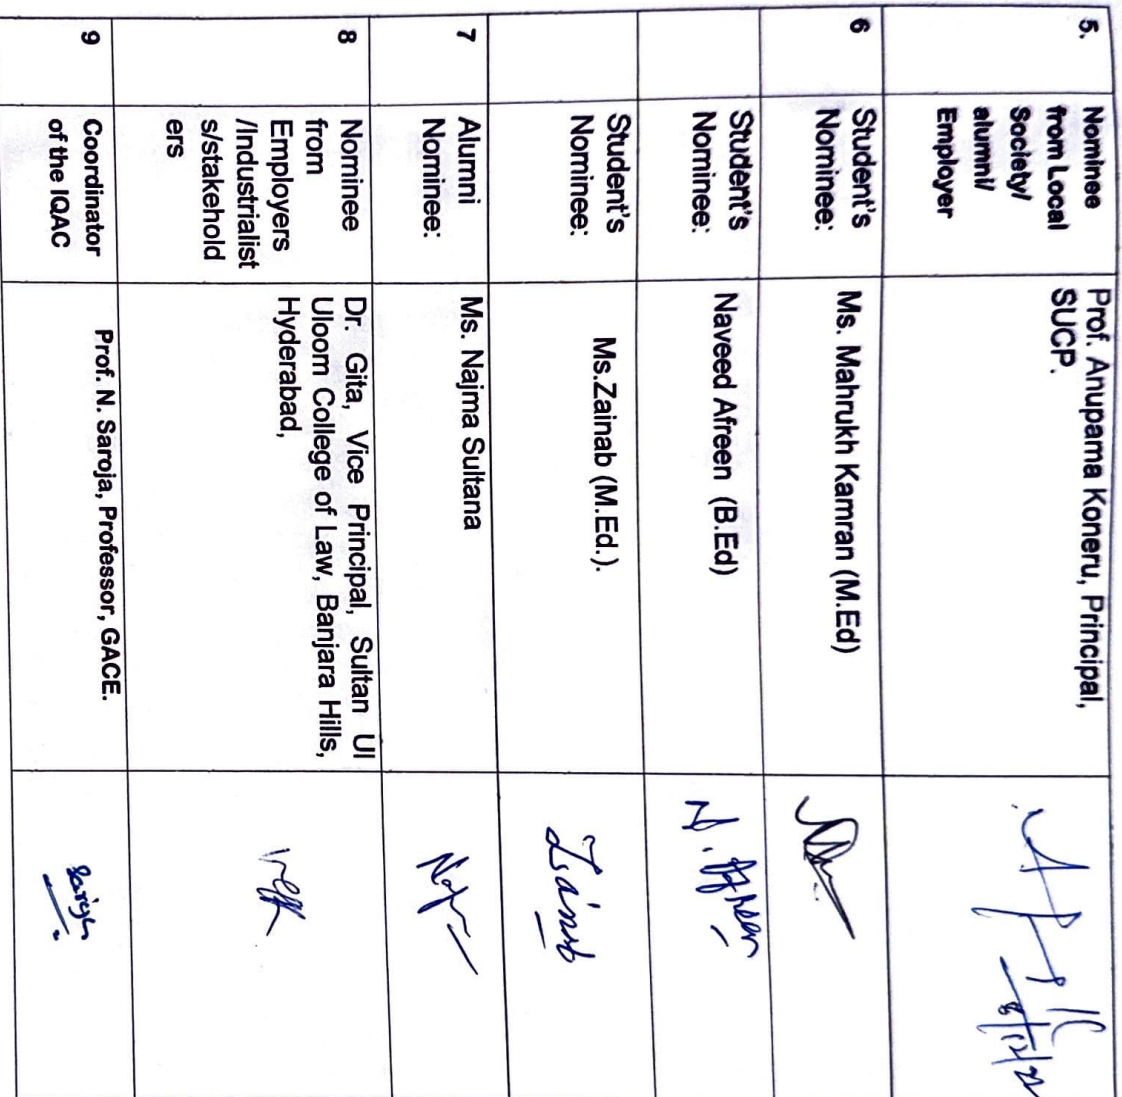 5.
Nominee
from Local
Society/
alumni/
Employer
Prof. Anupama Koneru, Principal,
SUCP.
6
Student's
Nominee:
Ms. Mahrukh Kamran (M.Ed)
Student's
Nominee:
Naveed Afreen (B.Ed)
N. Afreen
Student's
Nominee:
Ms.Zainab (M.Ed.).
Zainab
7
Alumni
Nominee:
Ms. Najma Sultana
8
Nominee
from
Employers
/Industrialist
s/stakehold
ers
Dr. Gita, Vice Principal, Sultan Ul
Uloom College of Law, Banjara Hills,
Hyderabad,
9
Coordinator
of the IQAC
Prof. N. Saroja, Professor, GACE.